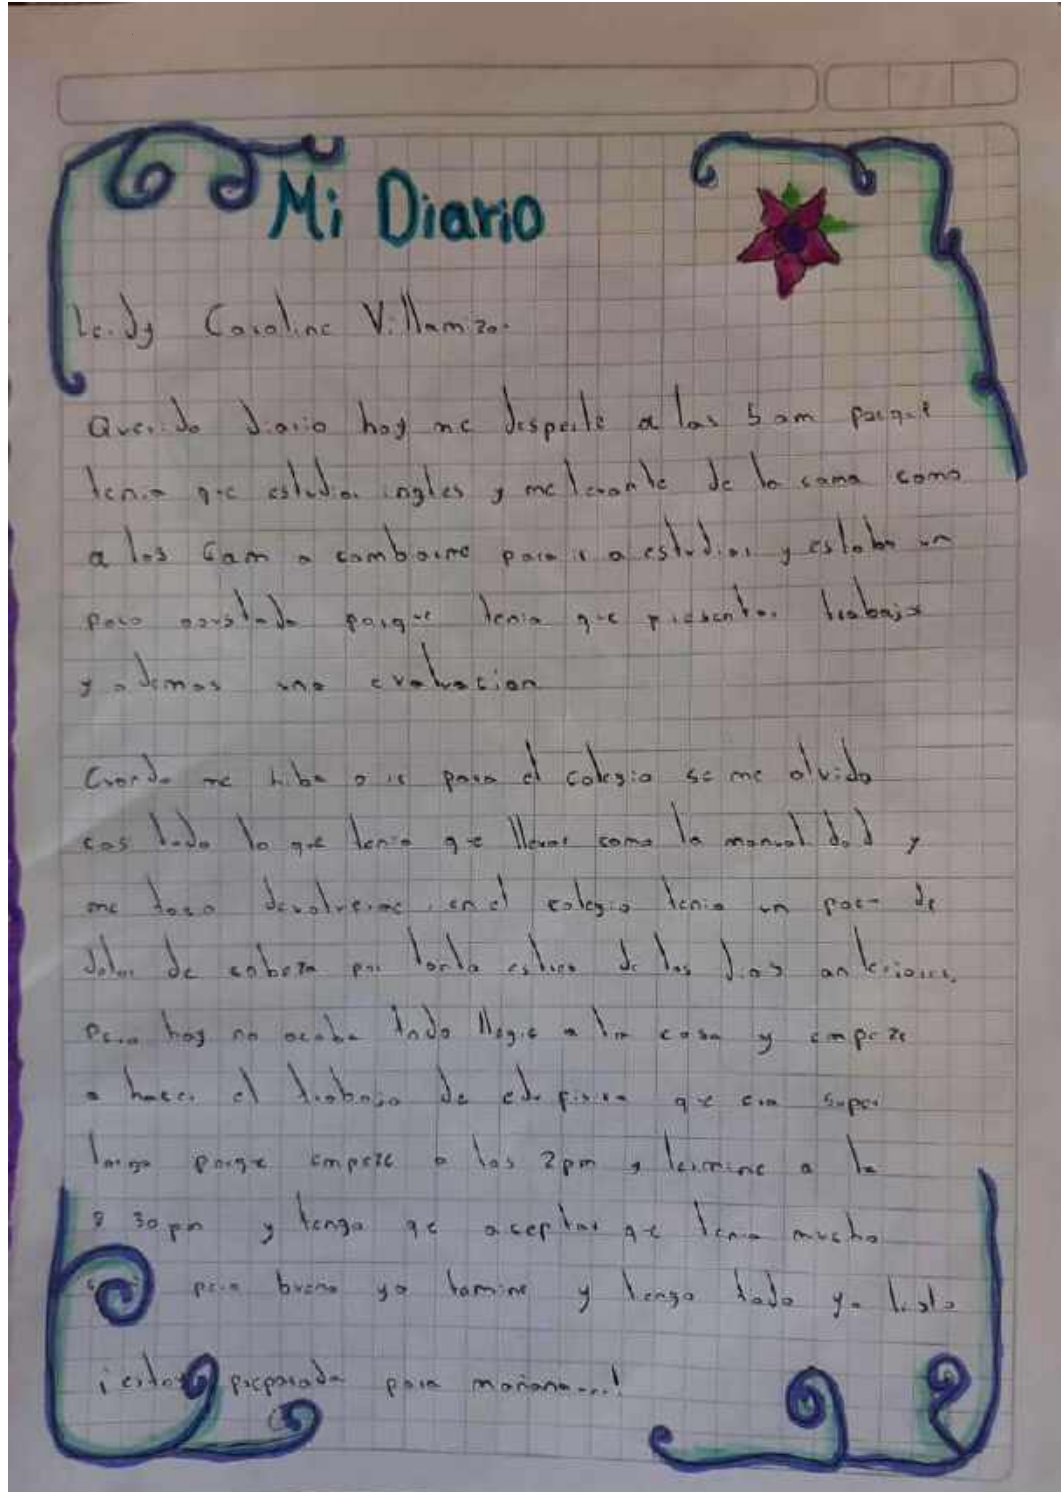 Mi Diario
Leidy Caroline Villamizar
Querido diario hoy me desperte a las 5 am porque
tenia que estudiar ingles y me levante de la cama como
a las 6am a cambiarme para ir a estudiar y estaba un
poco asustada porque tenia que presentar trabajos
y ademas una evaluacion
Cuando me hiba a ir para el colegio se me olvido
casi todo lo que tenia que llevar como la manualidad y
me toco devolverme, en el colegio tenia un poco de
dolor de cabeza por tanto estres de los dias anteriores,
Pero hoy no acaba todo llegue a la casa y empeze
a hacer el trabajo de edu fisica que era super
largo porque empeze a las 2pm y termine a la
8 30pm y tengo que aceptar que tenia mucho
pero bueno ya termine y tengo todo ya listo
¡estoy preparada para mañana...!